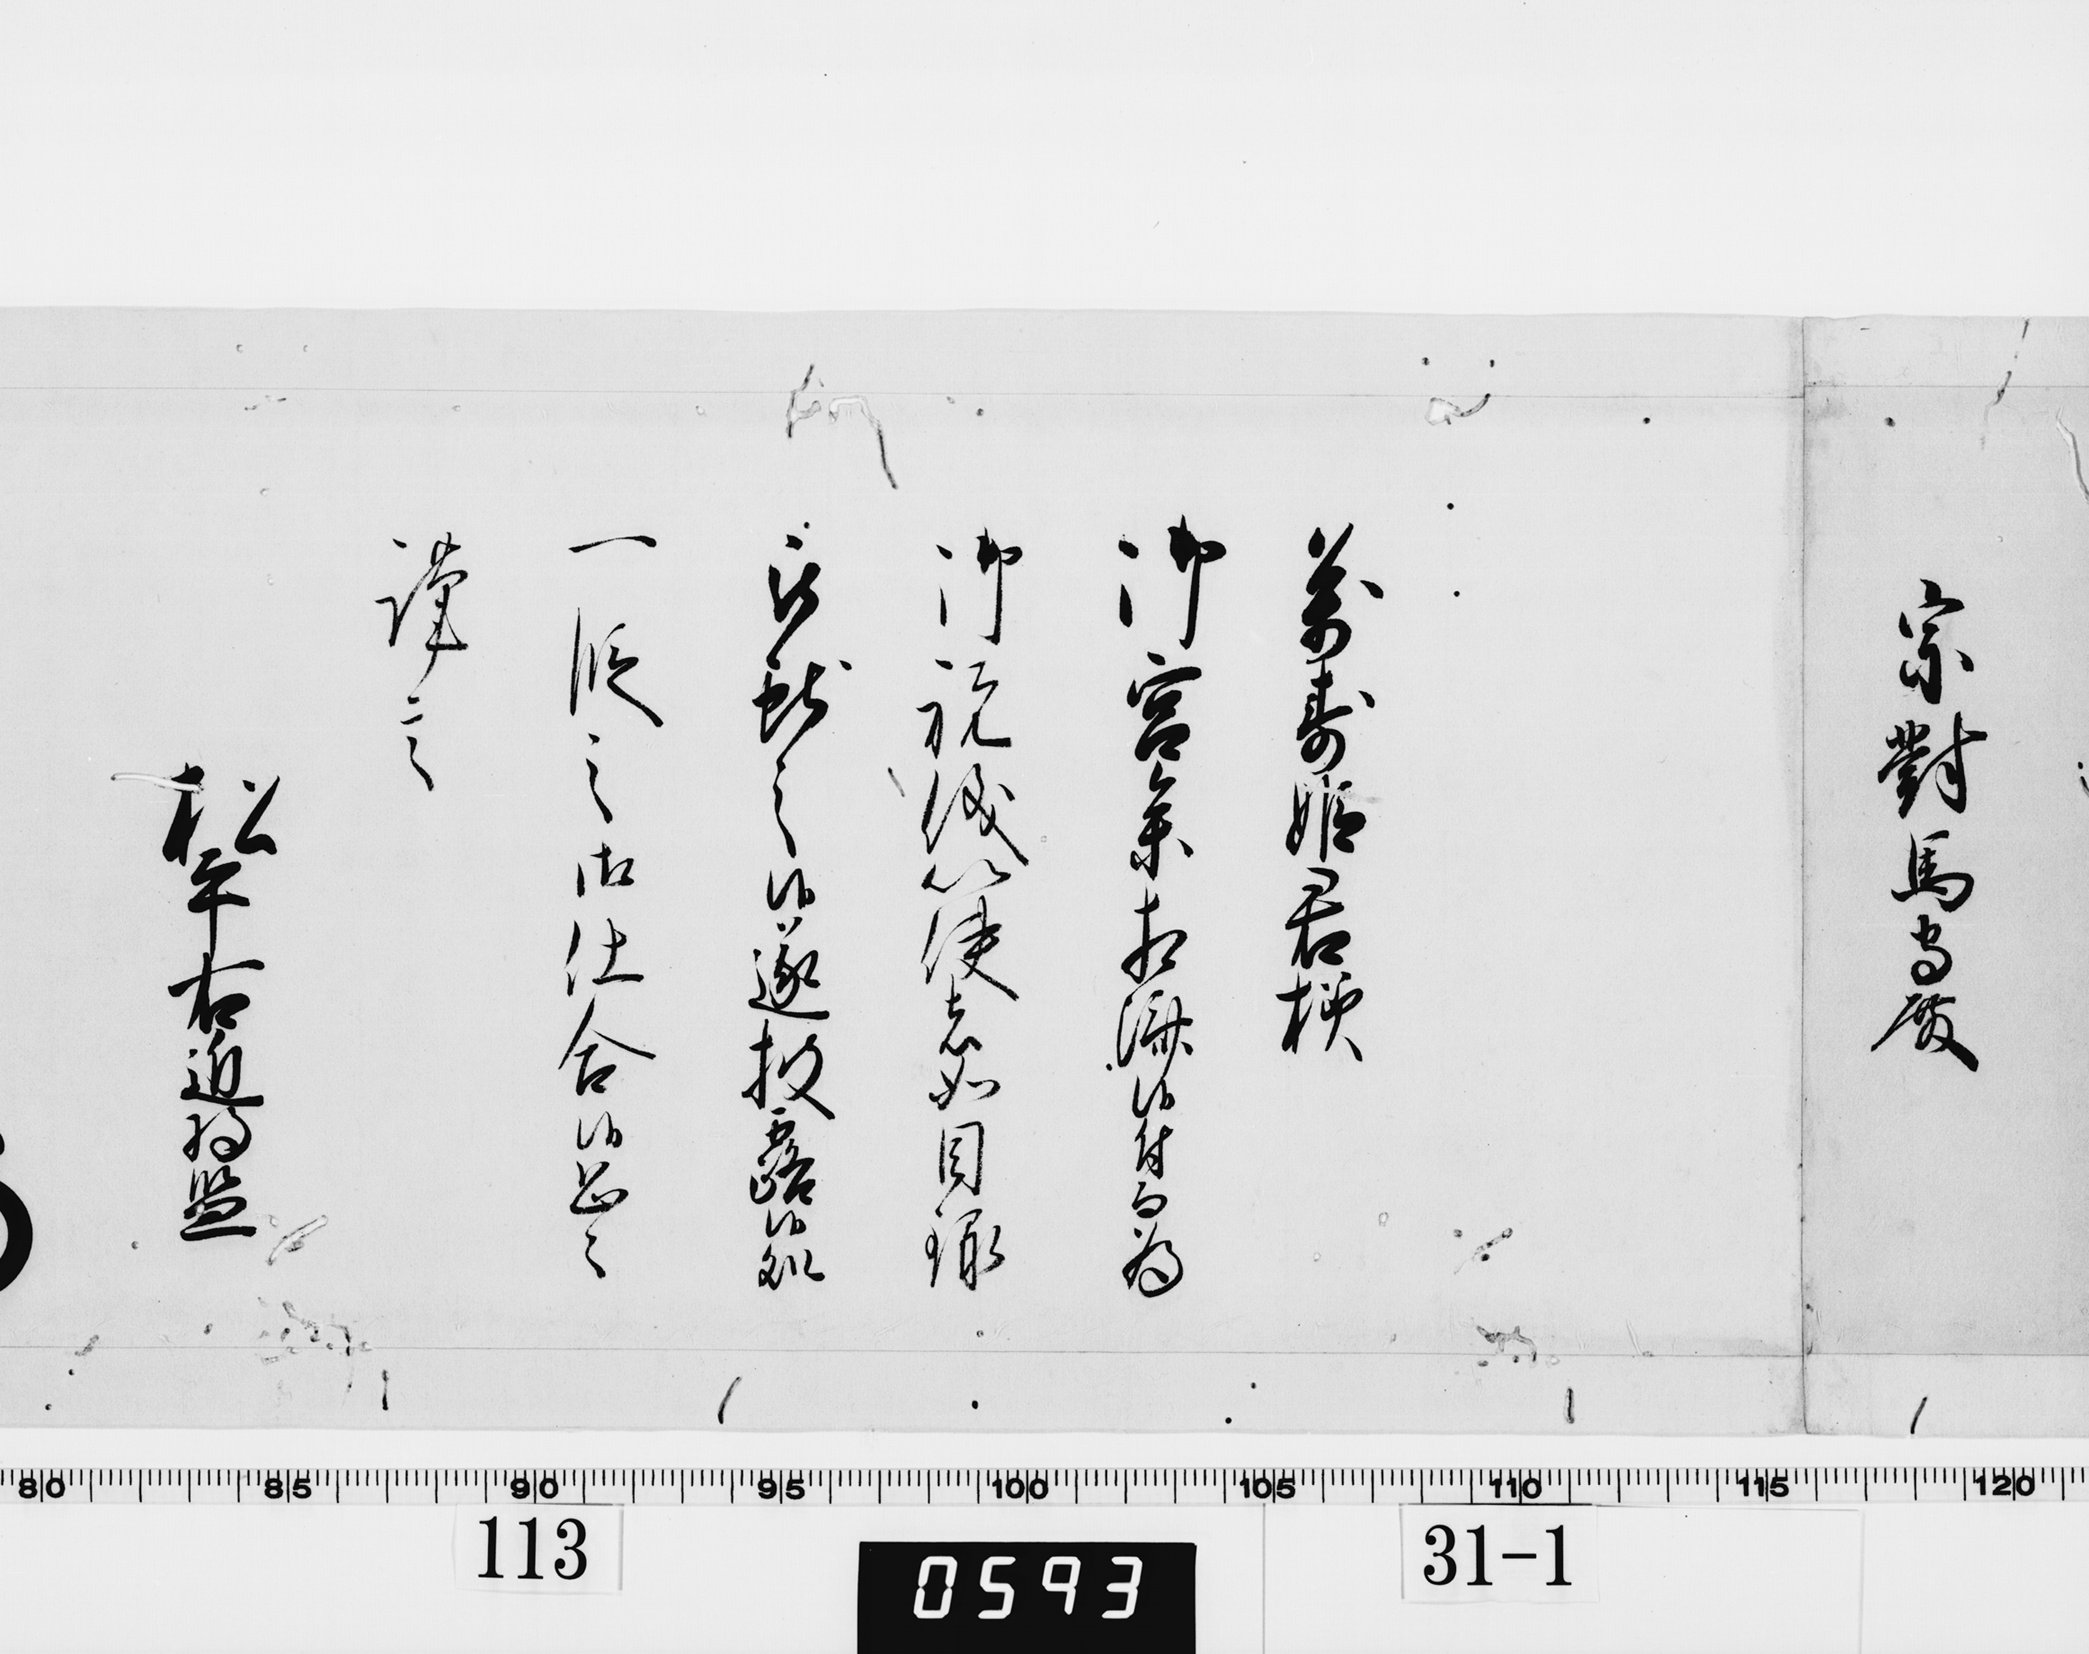 宗對馬守殿
萬壽姫君様
御宮参相濟候付而為
御祝儀以使者如目録
被獻之候遂披露候処
一段之御仕合候恐々
謹言
松平右近将監
80 85 90 95 100 105 110 115 120
113
0593
31-1